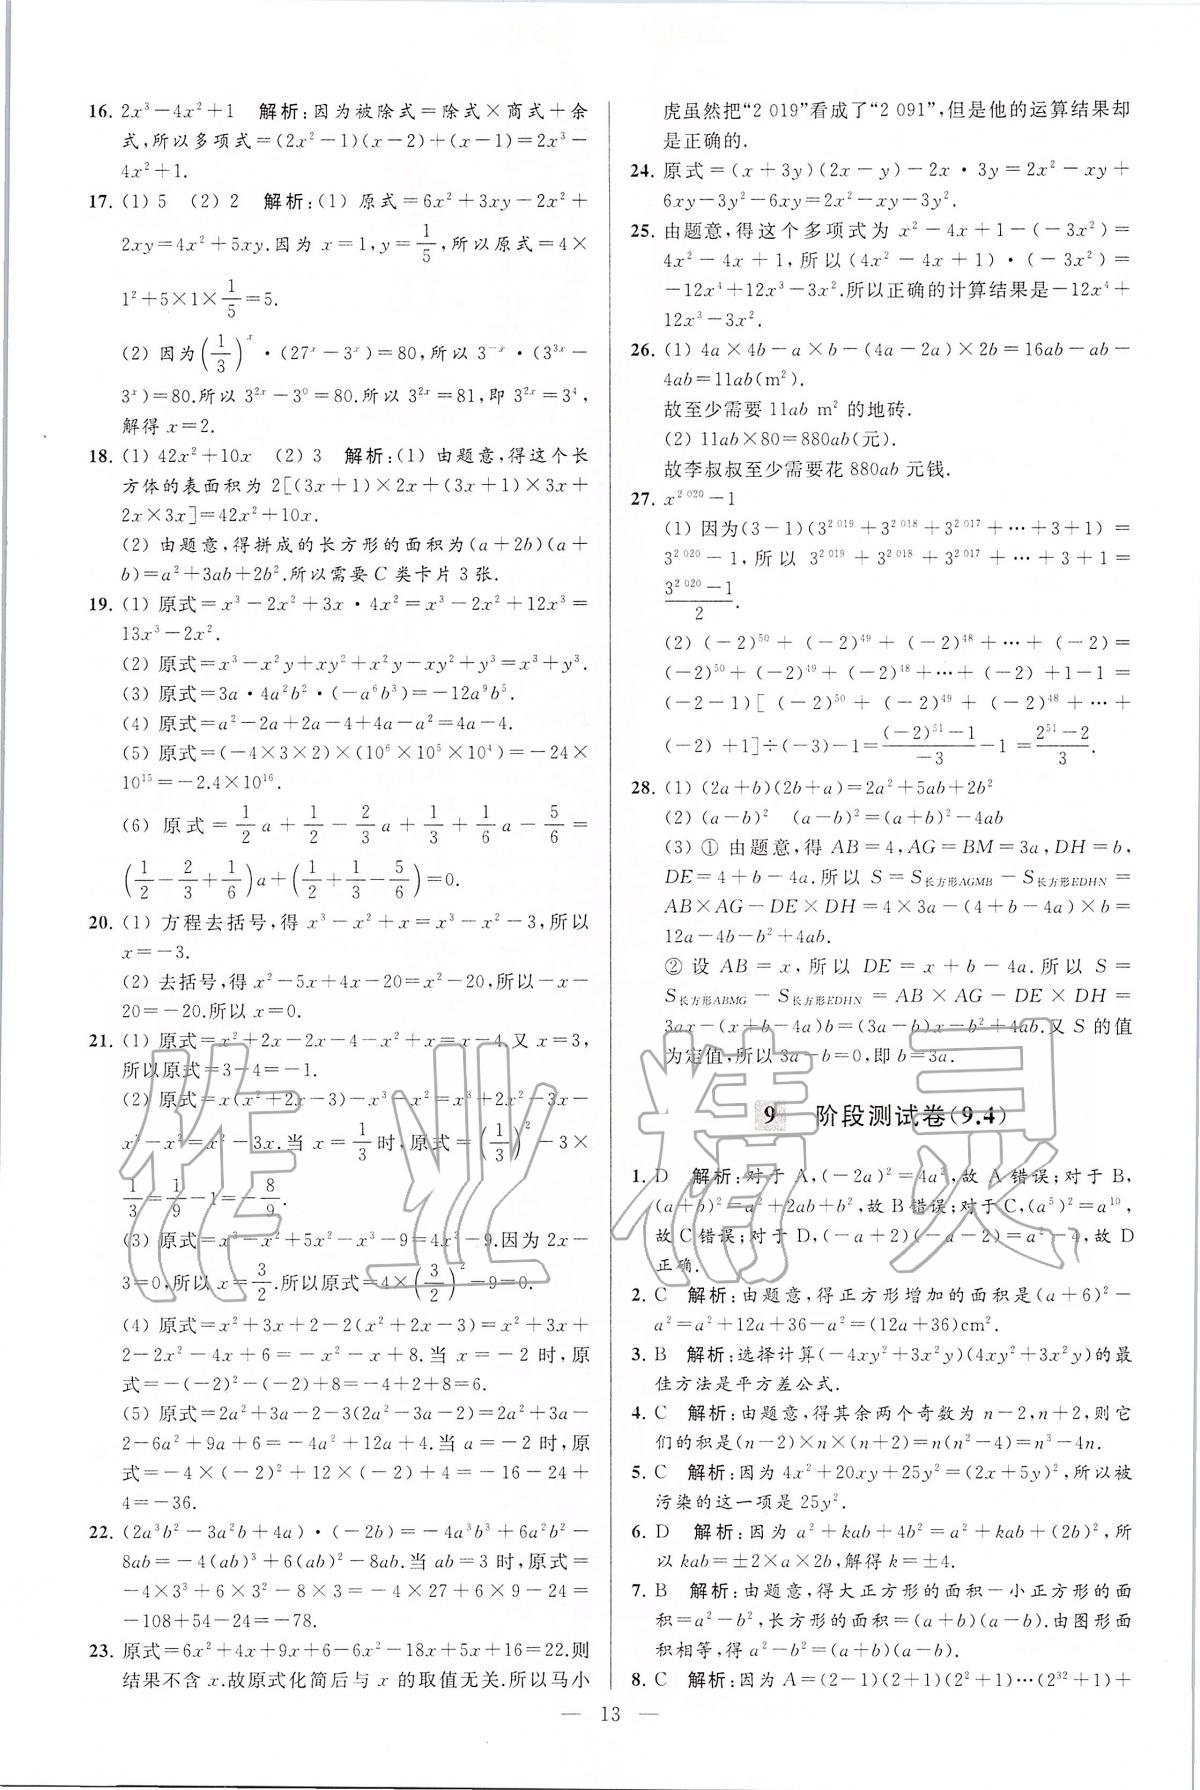 16. 2x³−4x²+1　解析:因为被除式=除式×商式+余
式,所以多项式=(2x²−1)(x−2)+(x−1)=2x³−
4x²+1.
17. (1) 5　(2) 2　解析:(1) 原式=6x²+3xy−2x²+
2xy=4x²+5xy.因为 x=1,y=1/5,所以原式=4×
1²+5×1×1/5=5.
(2) 因为(1/3)ˣ·(27ˣ−3ˣ)=80,所以 3⁻ˣ·(3³ˣ−
3ˣ)=80.所以 3²ˣ−3⁰=80.所以 3²ˣ=81,即 3²ˣ=3⁴,
解得 x=2.
18. (1) 42x²+10x　(2) 3　解析:(1) 由题意,得这个长
方体的表面积为 2[(3x+1)×2x+(3x+1)×3x+
2x×3x]=42x²+10x.
(2) 由题意,得拼成的长方形的面积为(a+2b)(a+
b)=a²+3ab+2b².所以需要 C 类卡片 3 张.
19. (1) 原式=x³−2x²+3x·4x²=x³−2x²+12x³=
13x³−2x².
(2) 原式=x³−x²y+xy²+x²y−xy²+y³=x³+y³.
(3) 原式=3a·4a²b²·(−a⁶b³)=−12a⁹b⁵.
(4) 原式=a²−2a+2a−4+4a−a²=4a−4.
(5) 原式=(−4×3×2)×(10⁶×10⁵×10⁴)=−24×
10¹⁵=−2.4×10¹⁶.
(6) 原式=1/2a+1/2−2/3a+1/3+1/6a−5/6=
(1/2−2/3+1/6)a+(1/2+1/3−5/6)=0.
20. (1) 方程去括号,得 x³−x²+x=x³−x²−3,所以
x=−3.
(2) 去括号,得 x²−5x+4x−20=x²−20,所以−x−
20=−20.所以 x=0.
21. (1) 原式=x²+2x−2x−4−x²+x=x−4.又 x=3,
所以原式=3−4=−1.
(2) 原式=x(x²+2x−3)−x³−x²=x³+2x²−3x−
x³−x²=x²−3x.当 x=1/3时,原式=(1/3)²−3×
1/3=1/9−1=−8/9.
(3) 原式=x³−x²+5x²−x³−9=4x²−9.因为 2x−
3=0,所以 x=3/2.所以原式=4×(3/2)²−9=0.
(4) 原式=x²+3x+2−2(x²+2x−3)=x²+3x+
2−2x²−4x+6=−x²−x+8.当 x=−2 时,原
式=−(−2)²−(−2)+8=−4+2+8=6.
(5) 原式=2a²+3a−2−3(2a²−3a−2)=2a²+3a−
2−6a²+9a+6=−4a²+12a+4.当 a=−2 时,原
式=−4×(−2)²+12×(−2)+4=−16−24+
4=−36.
22. (2a³b²−3a²b+4a)·(−2b)=−4a³b³+6a²b²−
8ab=−4(ab)³+6(ab)²−8ab.当 ab=3 时,原式=
−4×3³+6×3²−8×3=−4×27+6×9−24=
−108+54−24=−78.
23. 原式=6x²+4x+9x+6−6x²−18x+5x+16=22.则
结果不含 x.故原式化简后与 x 的取值无关.所以马小
虎虽然把“2 019”看成了“2 091”,但是他的运算结果却
是正确的.
24. 原式=(x+3y)(2x−y)−2x·3y=2x²−xy+
6xy−3y²−6xy=2x²−xy−3y².
25. 由题意,得这个多项式为 x²−4x+1−(−3x²)=
4x²−4x+1,所以(4x²−4x+1)·(−3x²)=
−12x⁴+12x³−3x².所以正确的计算结果是−12x⁴+
12x³−3x².
26. (1) 4a×4b−a×b−(4a−2a)×2b=16ab−ab−
4ab=11ab(m²).
故至少需要 11ab m² 的地砖.
(2) 11ab×80=880ab(元).
故李叔叔至少需要花 880ab 元钱.
27. x²⁰²⁰−1
(1) 因为(3−1)(3²⁰¹⁹+3²⁰¹⁸+3²⁰¹⁷+⋯+3+1)=
3²⁰²⁰−1,所以 3²⁰¹⁹+3²⁰¹⁸+3²⁰¹⁷+⋯+3+1=
(3²⁰²⁰−1)/2.
(2) (−2)⁵⁰+(−2)⁴⁹+(−2)⁴⁸+⋯+(−2)=
(−2)⁵⁰+(−2)⁴⁹+(−2)⁴⁸+⋯+(−2)+1−1=
(−2−1)[(−2)⁵⁰+(−2)⁴⁹+(−2)⁴⁸+⋯+
(−2)+1]÷(−3)−1=((−2)⁵¹−1)/(−3)−1=(2⁵¹−2)/3.
28. (1) (2a+b)(2b+a)=2a²+5ab+2b²
(2) (a−b)²　(a−b)²=(a+b)²−4ab
(3) ① 由题意,得 AB=4,AG=BM=3a,DH=b,
DE=4+b−4a.所以 S=S长方形AGMB−S长方形EDHN=
AB×AG−DE×DH=4×3a−(4+b−4a)×b=
12a−4b−b²+4ab.
② 设 AB=x,所以 DE=x+b−4a.所以 S=
S长方形ABMG−S长方形EDHN=AB×AG−DE×DH=
3ax−(x+b−4a)b=(3a−b)x−b²+4ab.又 S 的值
为定值,所以 3a−b=0,即 b=3a.
9　阶段测试卷(9.4)
1. D　解析:对于 A,(−2a)²=4a²,故 A 错误;对于 B,
(a+b)²=a²+2ab+b²,故 B 错误;对于 C,(a⁵)²=a¹⁰,
故 C 错误;对于 D,(−a+2)(−a−2)=a²−4,故 D
正确.
2. C　解析:由题意,得正方形增加的面积是(a+6)²−
a²=a²+12a+36−a²=(12a+36)cm².
3. B　解析:选择计算(−4xy²+3x²y)(4xy²+3x²y)的最
佳方法是平方差公式.
4. C　解析:由题意,得其余两个奇数为 n−2,n+2,则它
们的积是(n−2)×n×(n+2)=n(n²−4)=n³−4n.
5. C　解析:因为 4x²+20xy+25y²=(2x+5y)²,所以被
污染的这一项是 25y².
6. D　解析:因为 a²+kab+4b²=a²+kab+(2b)²,所
以 kab=±2×a×2b,解得 k=±4.
7. B　解析:由题意,得大正方形的面积−小正方形的面
积=a²−b²,长方形的面积=(a+b)(a−b).由图形面
积相等,得 a²−b²=(a+b)(a−b).
8. C　解析:因为 A=(2−1)(2+1)(2²+1)⋯(2³²+1)+
— 13 —
作业精灵